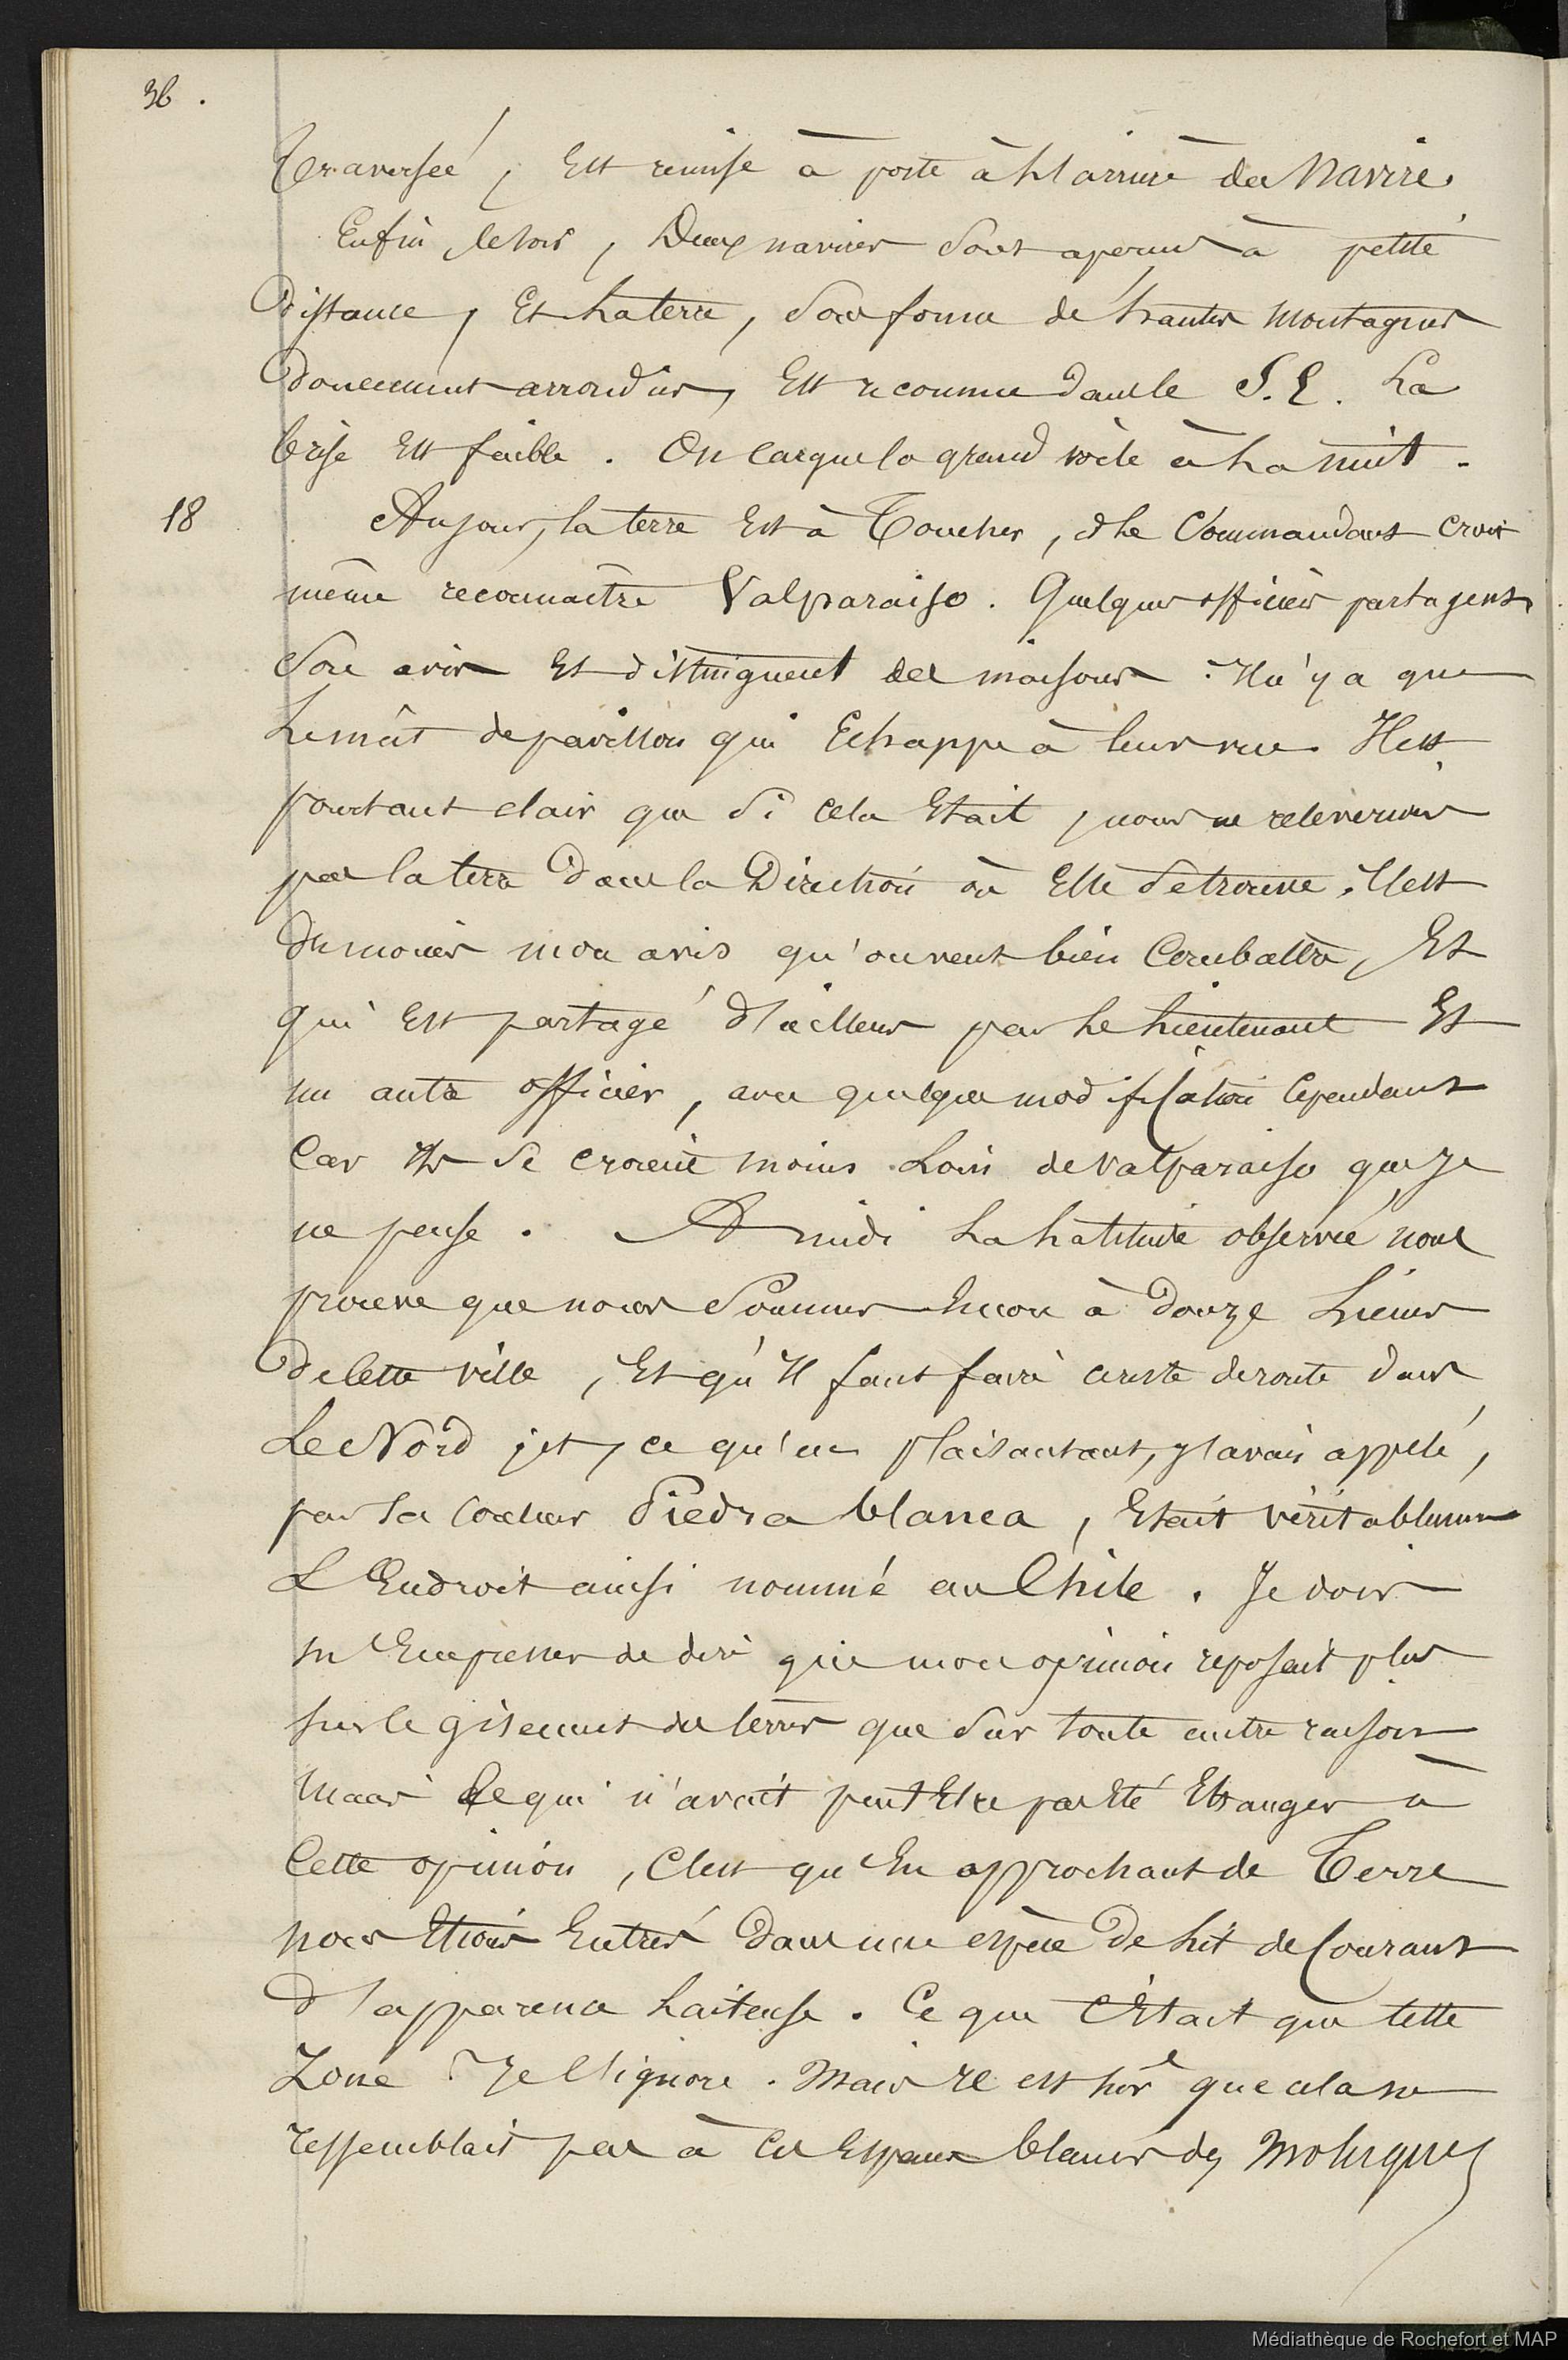 36.
Traversée, Est remise à poste à l'arrière du Navire.
Enfin, le soir, Deux navires sont aperçus à petite
Distance, Et la terre, sous forme de hautes montagnes
Doucement arrondies, Est reconnue dans le S.E. La
brise Est faible. On cargue la grand voile à la nuit.
18
Au jour, la terre Est à Toucher, & le Commandant croit
même reconnaître Valparaiso. Quelques officiers partagent
son avis Et distinguent des maisons. Il n'y a que
Le mât de pavillon qui Echappe à leur vue. Il est
pourtant clair que si cela Etait, nous ne releverions
pas la terre Dans la Direction où Elle se trouve. C'est
Du moins mon avis qu'on veut bien Combattre, Et
qui Est partagé d'ailleurs par Le Lieutenant Et
un autre officier, avec quelque modification Cependant
Car Ils se croient moins Loin de Valparaiso que je
ne pense. A midi La Latitude observée nous
prouve que nous sommes Encore à Douze Lieues
De Cette ville, Et qu'Il faut faire ce reste de route dans
Le Nord, et, ce qu'en plaisantant, j'avais appelé,
par sa couleur Piedra blanca, Etait véritablement
L'Endroit ainsi nommé au Chile. Je dois
m'Empresser de dire que mon opinion reposait plus
sur le gisement des terres que sur toute autre raison
Mais Ce qui n'avait peut Etre pas Eté Etranger à
Cette opinion, C'est qu'En approchant de Terre
nous Etions Entrés Dans une espèce De Lit de Courant
D'apparence Laiteuse. Ce que C'Etait que Cette
Zone Je l'ignore. Mais Il est sûr que cela ne
ressemblait pas à ces Espaces blancs des Moluques
Médiathèque de Rochefort et MAP